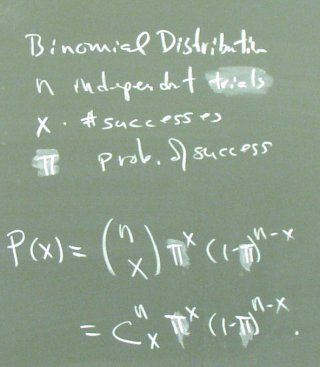 Binomial Distribution
n independent trials
x · # successes
π prob. of success
P(x) = (n x) π^x (1-π)^n-x
= C^n_x π^x (1-π)^n-x .